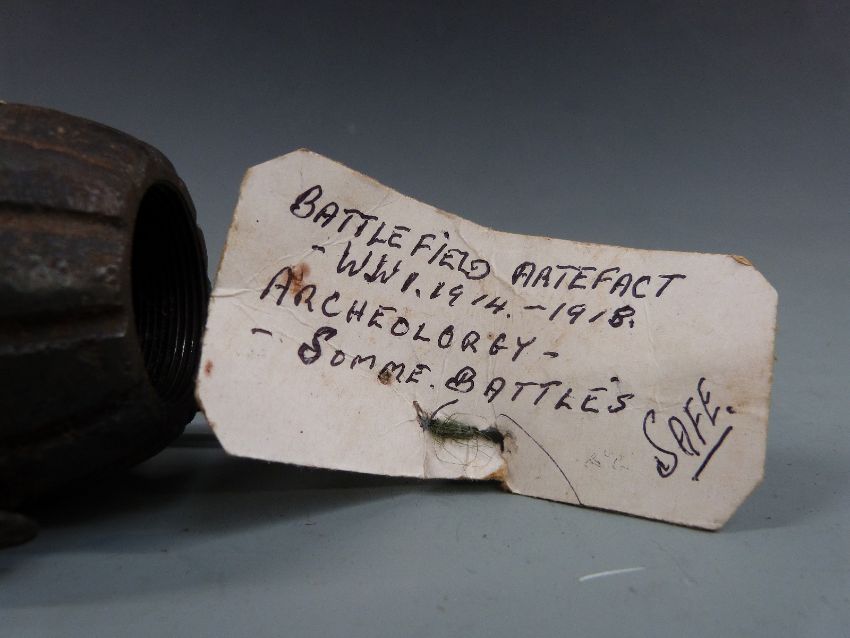 BATTLEFIELD ARTEFACT
- WW1. 1914. - 1918.
ARCHEOLORGY -
- SOMME. BATTLE'S
SAFE.